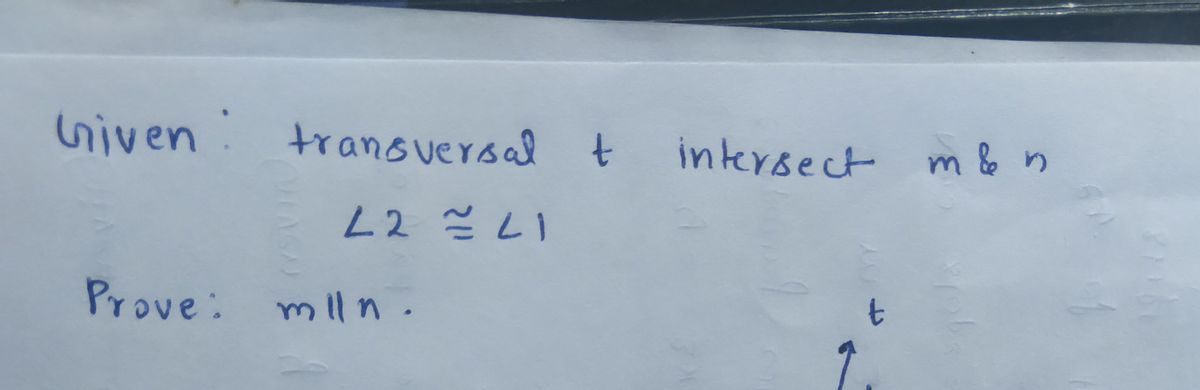 Given : transversal t intersect m & n
∠2 ≅ ∠1
Prove : m || n .
t